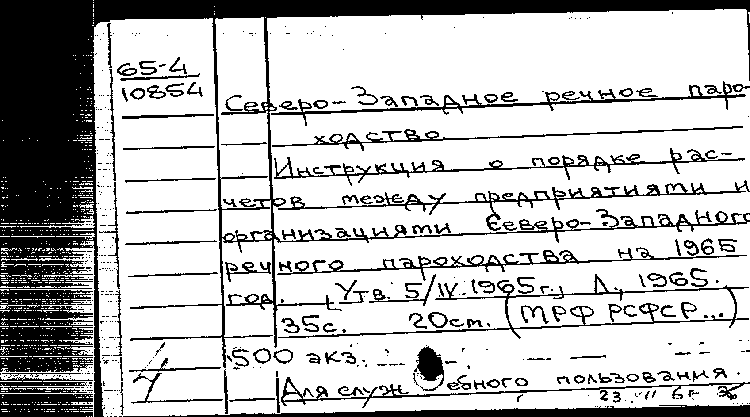 65-4
10854
Северо-Западное речное паро-
ходство
Инструкция о порядке рас-
четов между предприятиями и
организациями Северо-Западного
речного пароходства на 1965
год. [Утв. 5/IV.1965г.] Л., 1965.
35с. 20см. (МРФ РСФСР...)
500 экз.
4
Для служебного пользования.
23 II 6г